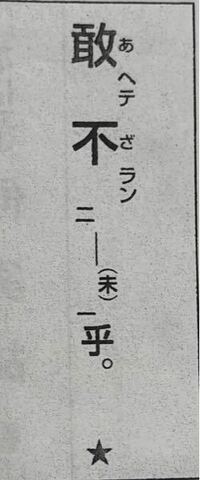 敢あヘテ不ざラン二―(未)一乎。★